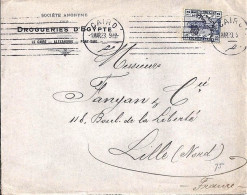 SOCIÉTÉ ANONYME
DES
DROGUERIES D'EGYPTE
LE CAIRE - ALEXANDRIE
CAIRO
Messieurs
Fanyau & Cie
118, Boul. de la Liberté
Lille (Nord)
France